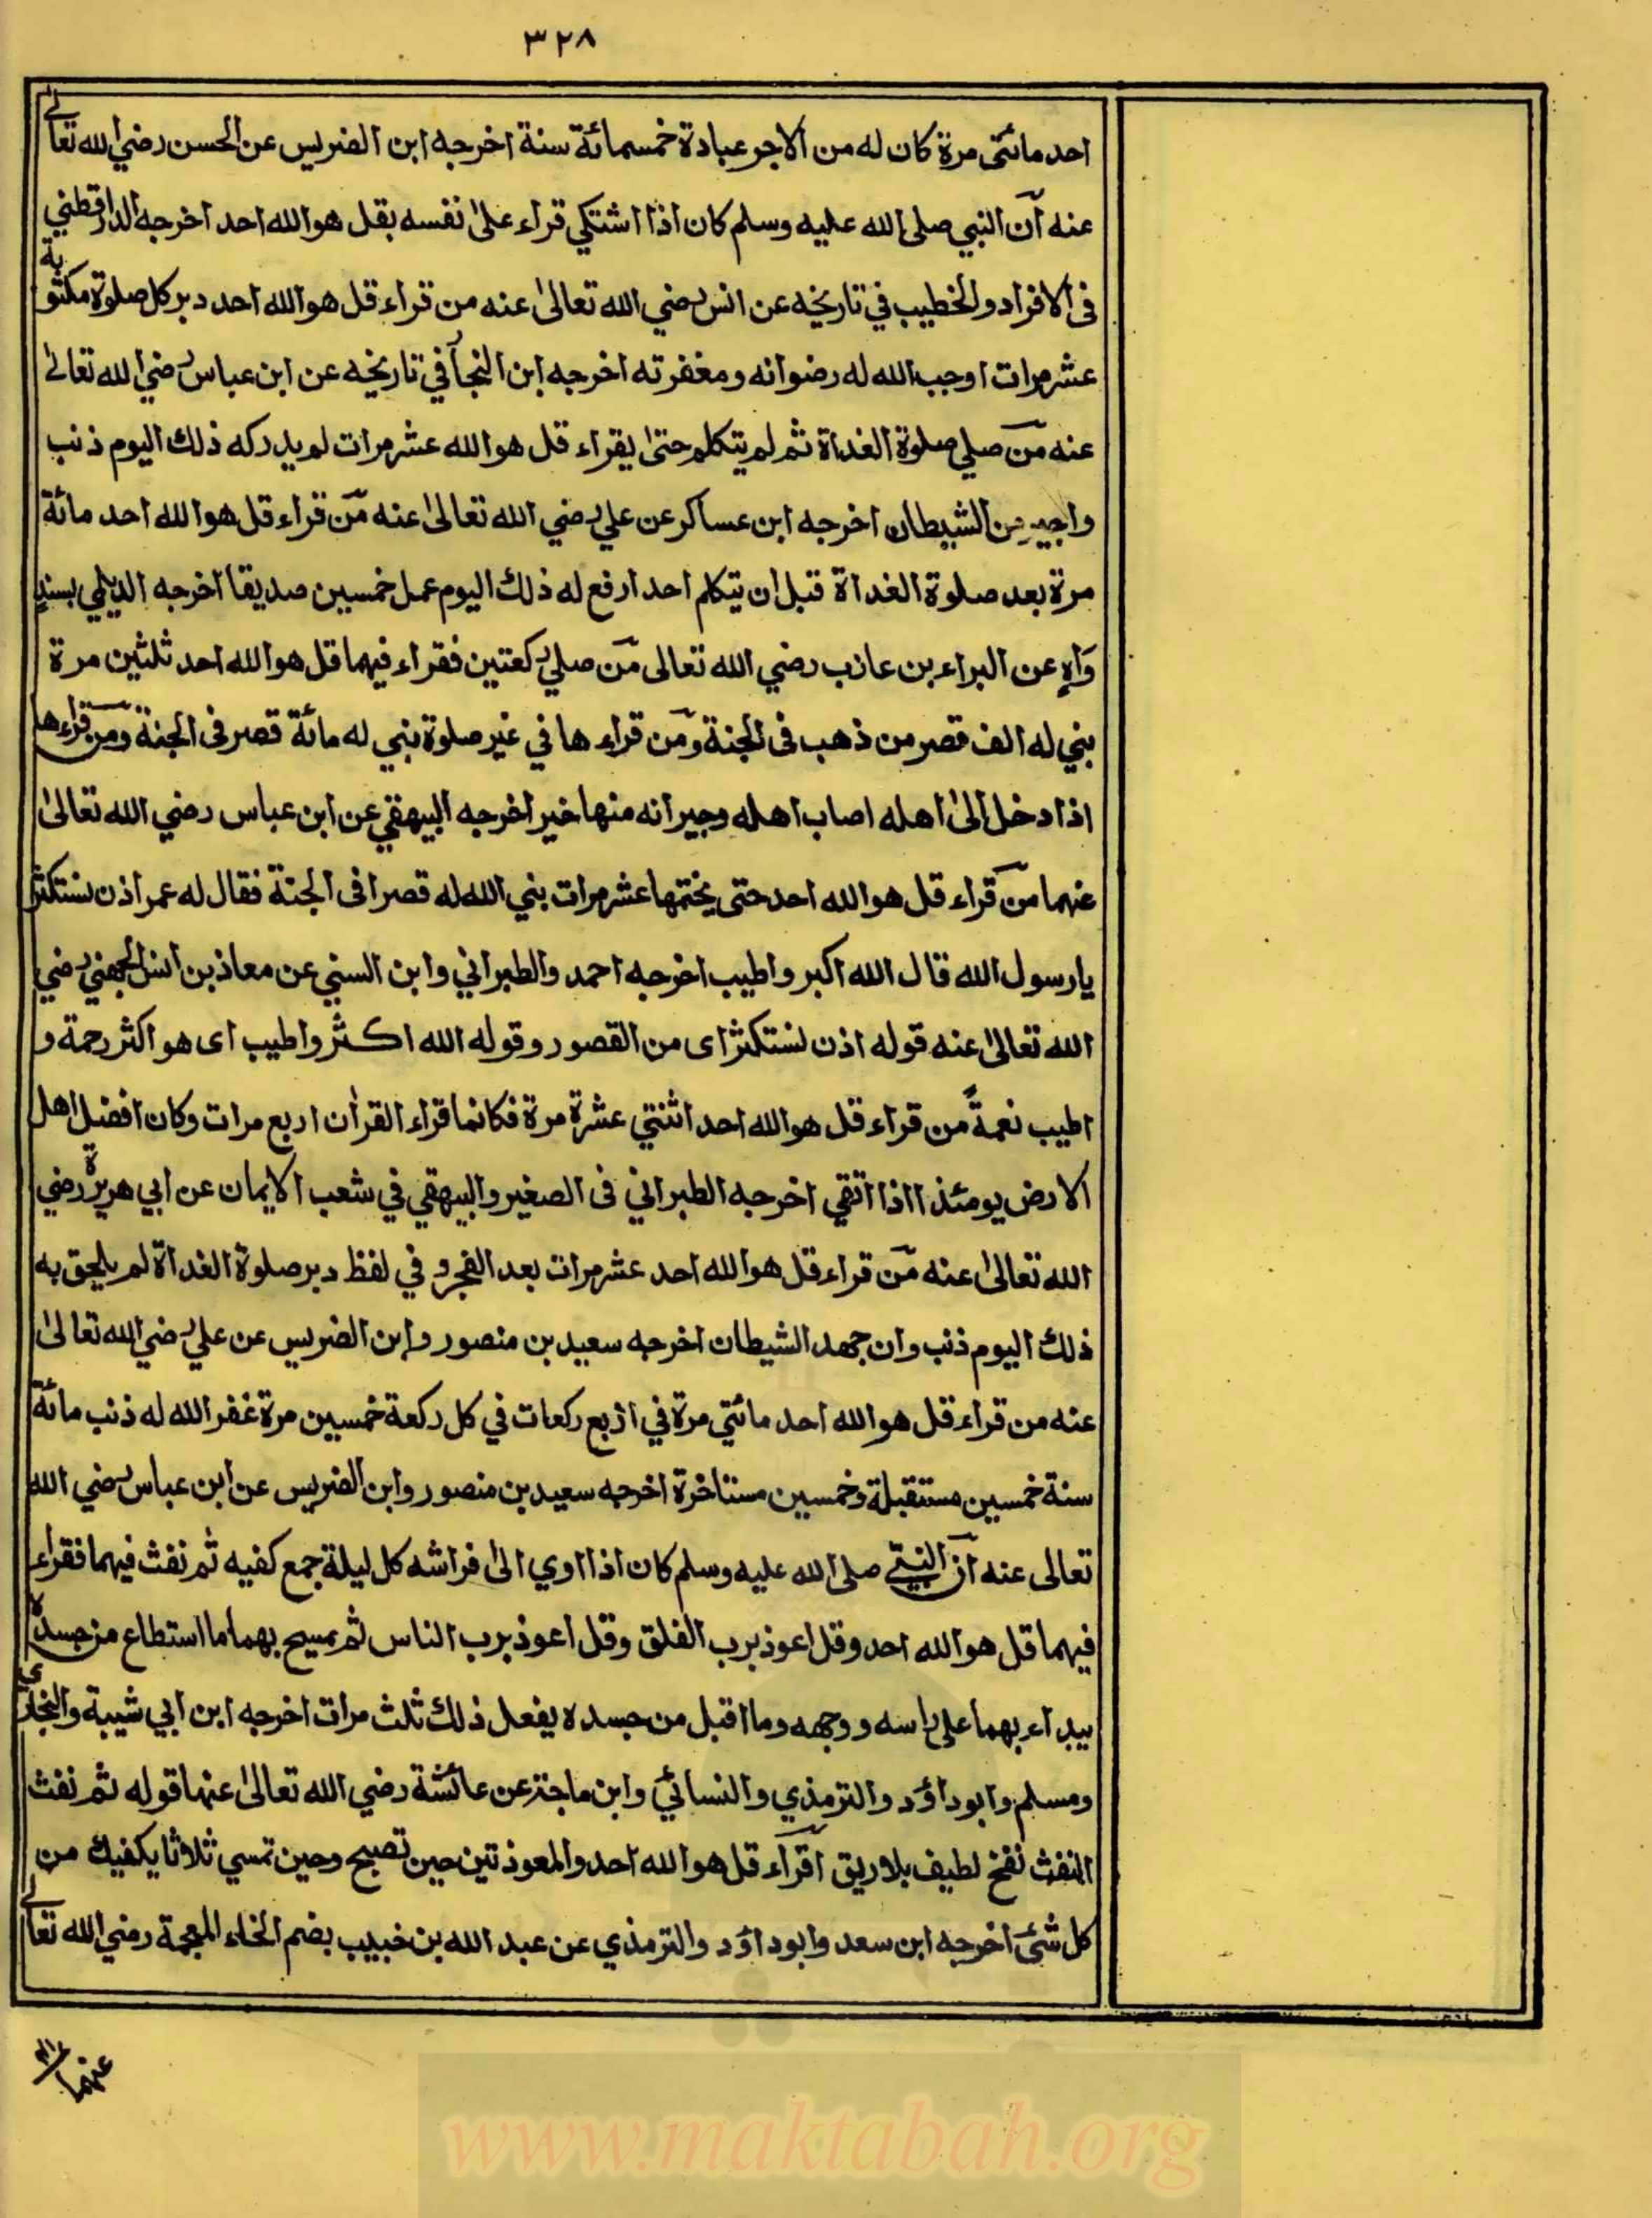 ٣٢٨
احد مائتى مرة كان له من الاجر عبادة خمسمائة سنة اخرجه ابن الضريس عن الحسن رضي الله تعالى
عنه آن النبي صلى الله عليه وسلم كان اذا اشتكي قراء على نفسه بقل هو الله احد اخرجه الدارقطني
فى الافراد والخطيب في تاريخه عن انس رضي الله تعالىٰ عنه من قراء قل هو الله احد دبر كل صلوة مكتوبة
عشر مرات اوجب الله له رضوانه ومغفرته اخرجه ابن النجار في تاريخه عن ابن عباس رضي الله تعالىٰ
عنه من صلي صلوة الغداة ثم لم يتكلم حتى يقراء قل هو الله عشر مرات لم يدركه ذلك اليوم ذنب
واجير من الشيطان اخرجه ابن عساكر عن علي رضي الله تعالىٰ عنه من قراء قل هو الله احد مائة
مرة بعد صلوة الغداة قبل ان يتكلم احدا رفع له ذلك اليوم عمل خمسين صديقا اخرجه الديلمي بسند
وَاهٍ عن البراء بن عازب رضي الله تعالى من صلي ركعتين فقراء فيهما قل هو الله احد ثلثين مرة
بني له الف قصر من ذهب فى الجنة ومن قراء ها في غير صلوة بني له مائة قصر فى الجنة ومن قراءها
اذا دخل الىٰ اهله اصاب اهله وجيرانه منها خير اخرجه البيهقي عن ابن عباس رضي الله تعالىٰ
عنهما من قراء قل هو الله احد حتى يختمها عشر مرات بني الله له قصرا فى الجنة فقال له عمر اذن نستكثر
يا رسول الله قال الله اكبر واطيب اخرجه احمد والطبراني وابن السني عن معاذ بن انس الجهني رضي
الله تعالىٰ عنه قوله اذن نستكثر اى من القصور وقوله الله اكثر واطيب اى هو اكثر رحمة و
اطيب نعمةً من قراء قل هو الله احد اثنتي عشرة مرة فكانما قراء القرأن اربع مرات وكان افضل اهل
الارض يومئذا اذا اتقي اخرجه الطبراني فى الصغير والبيهقي في شعب الايمان عن ابي هريرة رضي
الله تعالىٰ عنه من قراء قل هو الله احد عشر مرات بعد الفجر و في لفظ دبر صلوة الغداة لم يلحق به
ذلك اليوم ذنب وان جهد الشيطان اخرجه سعيد بن منصور وابن الضريس عن علي رضي الله تعالىٰ
عنه من قراء قل هو الله احد مائتي مرة في اربع ركعات في كل ركعة خمسين مرة غفر الله له ذنب مائة
سنة خمسين مستقبلة وخمسين مستاخرة اخرجه سعيد بن منصور وابن الضريس عن ابن عباس رضي الله
تعالى عنه آن النبي صلى الله عليه وسلم كان اذا اوي الىٰ فراشه كل ليلة جمع كفيه ثم نفث فيهما فقراء
فيهما قل هو الله احد وقل اعوذ برب الفلق وقل اعوذ برب الناس ثم يمسح بهما ما استطاع من جسده
يبداء بهما على راسه ووجهه وما اقبل من جسده يفعل ذلك ثلث مرات اخرجه ابن ابي شيبة والبخاري
ومسلم وابو داؤد والترمذي والنسائي وابن ماجة عن عائشة رضي الله تعالىٰ عنها قوله ثم نفث
النفث نفخ لطيف بلا ريق اقراء قل هو الله احد والمعوذتين حين تصبح وحين تمسي ثلاثا يكفيك من
كل شئ اخرجه ابن سعد وابو داؤد والترمذي عن عبد الله بن خبيب بضم الخاء المعجمة رضي الله تعالى
عنهما
www.maktabah.org